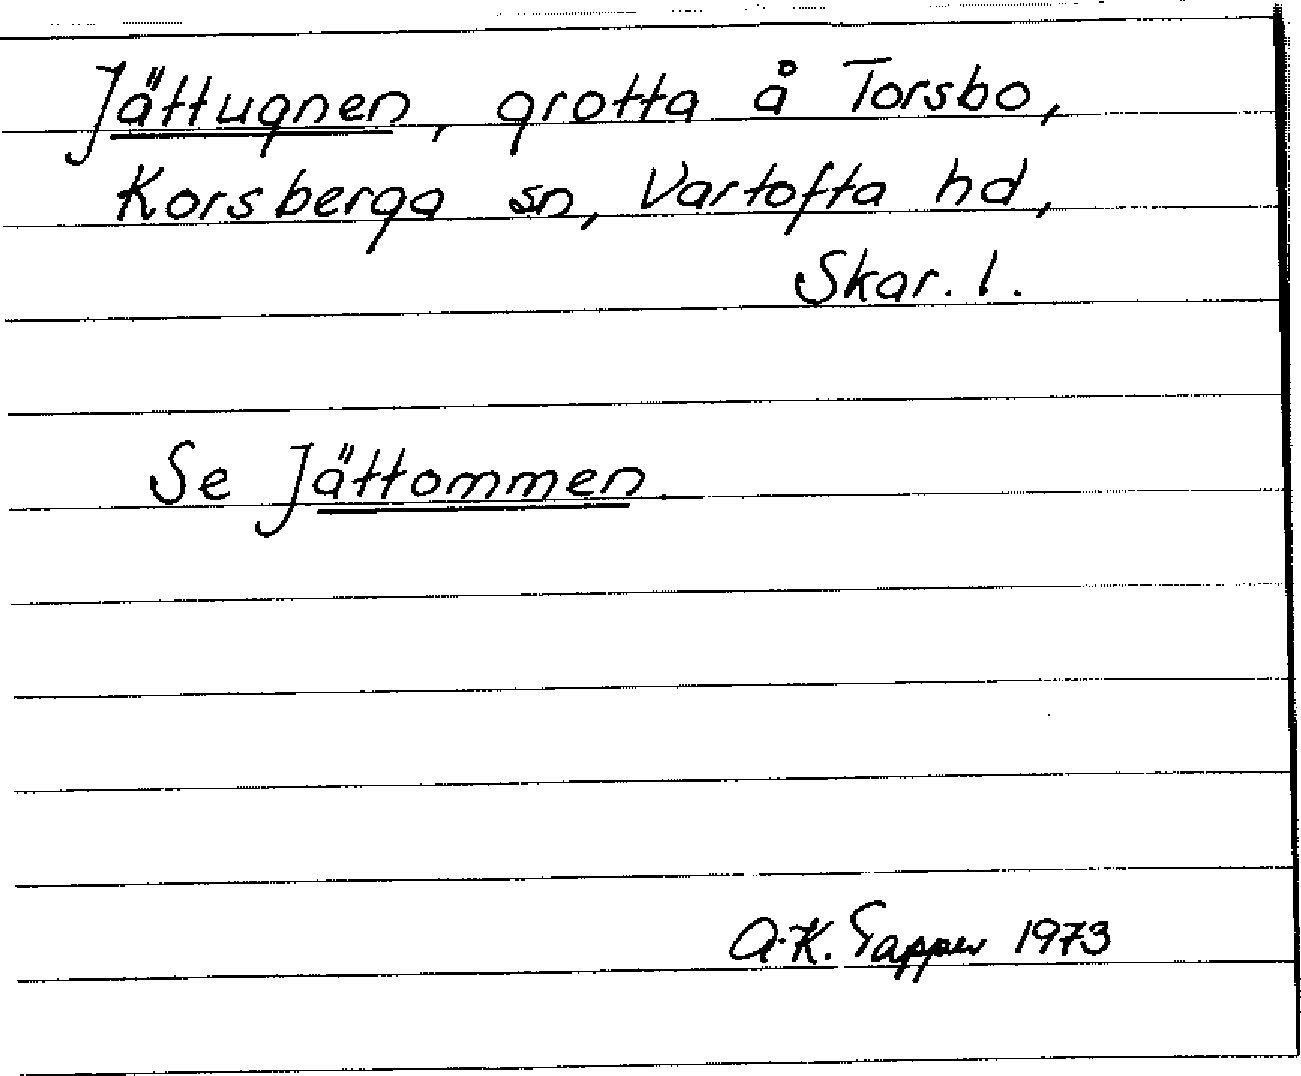 Jättugnen, grotta å Torsbo,
Korsberga sn, Vartofta hd,
Skar. l.
Se Jättommen.
A-K. Tapper 1973